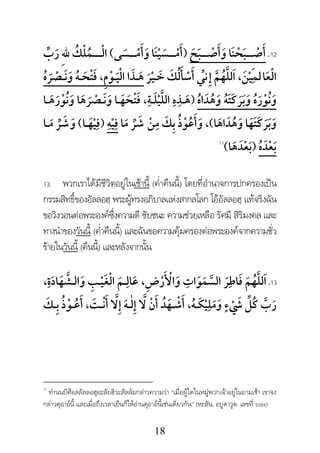 12. أَصْـــبَحْنَا وَأَصْـــبَحَ (أَمْـــسَيْنَا وَأَمْـــسَى) الْـــمُلْكُ لِلهِ رَبِّ
الْعَالَـمِيْنَ، اَللَّهُمَّ إِنِّي أَسْأَلُكَ خَـيْرَ هَـذَا الْيَـوْمِ، فَتْحَـهُ وَنَـصْرَهُ
وَنُوْرَهُ وَبَرَكَتَهُ وَهُدَاهُ (هَـذِهِ اللَّيْلَـةِ، فَتْحَهَـا وَنَـصْرَهَا وَنُوْرَهَـا
وَبَرَكَتَهَا وَهُدَاهَا)، وَأَعُوْذُ بِكَ مِنْ شَرِّ مَا فِيْهِ (فِيْهَـا) وَ شَرِّ مَـا
بَعْدَهُ (بَعْدَهَا)¹³
13. พวกเราได้มีชีวิตอยู่ในเช้านี้ (ค่ำคืนนี้) โดยที่อำนาจการปกครองเป็น
กรรมสิทธิ์ของอัลลอฮฺ พระผู้ทรงอภิบาลแห่งสากลโลก โอ้อัลลอฮฺ แท้จริงฉัน
ขอวิงวอนต่อพระองค์ซึ่งความดี ชัยชนะ ความช่วยเหลือ รัศมี สิริมงคล และ
ทางนำของวันนี้ (ค่ำคืนนี้) และฉันขอความคุ้มครองต่อพระองค์จากความชั่ว
ร้ายในวันนี้ (คืนนี้) และหลังจากนั้น
13. اَللَّهُمَّ فَاطِرَ السَّمَوَاتِ وَالْأَرْضِ، عَـالِـمَ الْغَيْـبِ وَالـشَّـهَـادَةِ،
رَبَّ كُلِّ شَيْءٍ وَمَلِيْكَـهُ، أَشْـهَدُ أَنْ لَّا إِلَـهَ إِلَّا أَنْـتَ، أَعُـوْذُ بِـكَ
¹³ ท่านนบีศ็อลลัลลอฮุอะลัยฮิวะสัลลัมกล่าวความว่า "เมื่อผู้ใดในหมู่พวกเจ้าอยู่ในยามเช้า เขาจง
กล่าวดุอาอ์นี้ และเมื่อถึงเวลาเย็นก็ให้อ่านดุอาอ์นี้เช่นเดียวกัน" (หะสัน, อบูดาวูด, เลขที่ 5084)
18